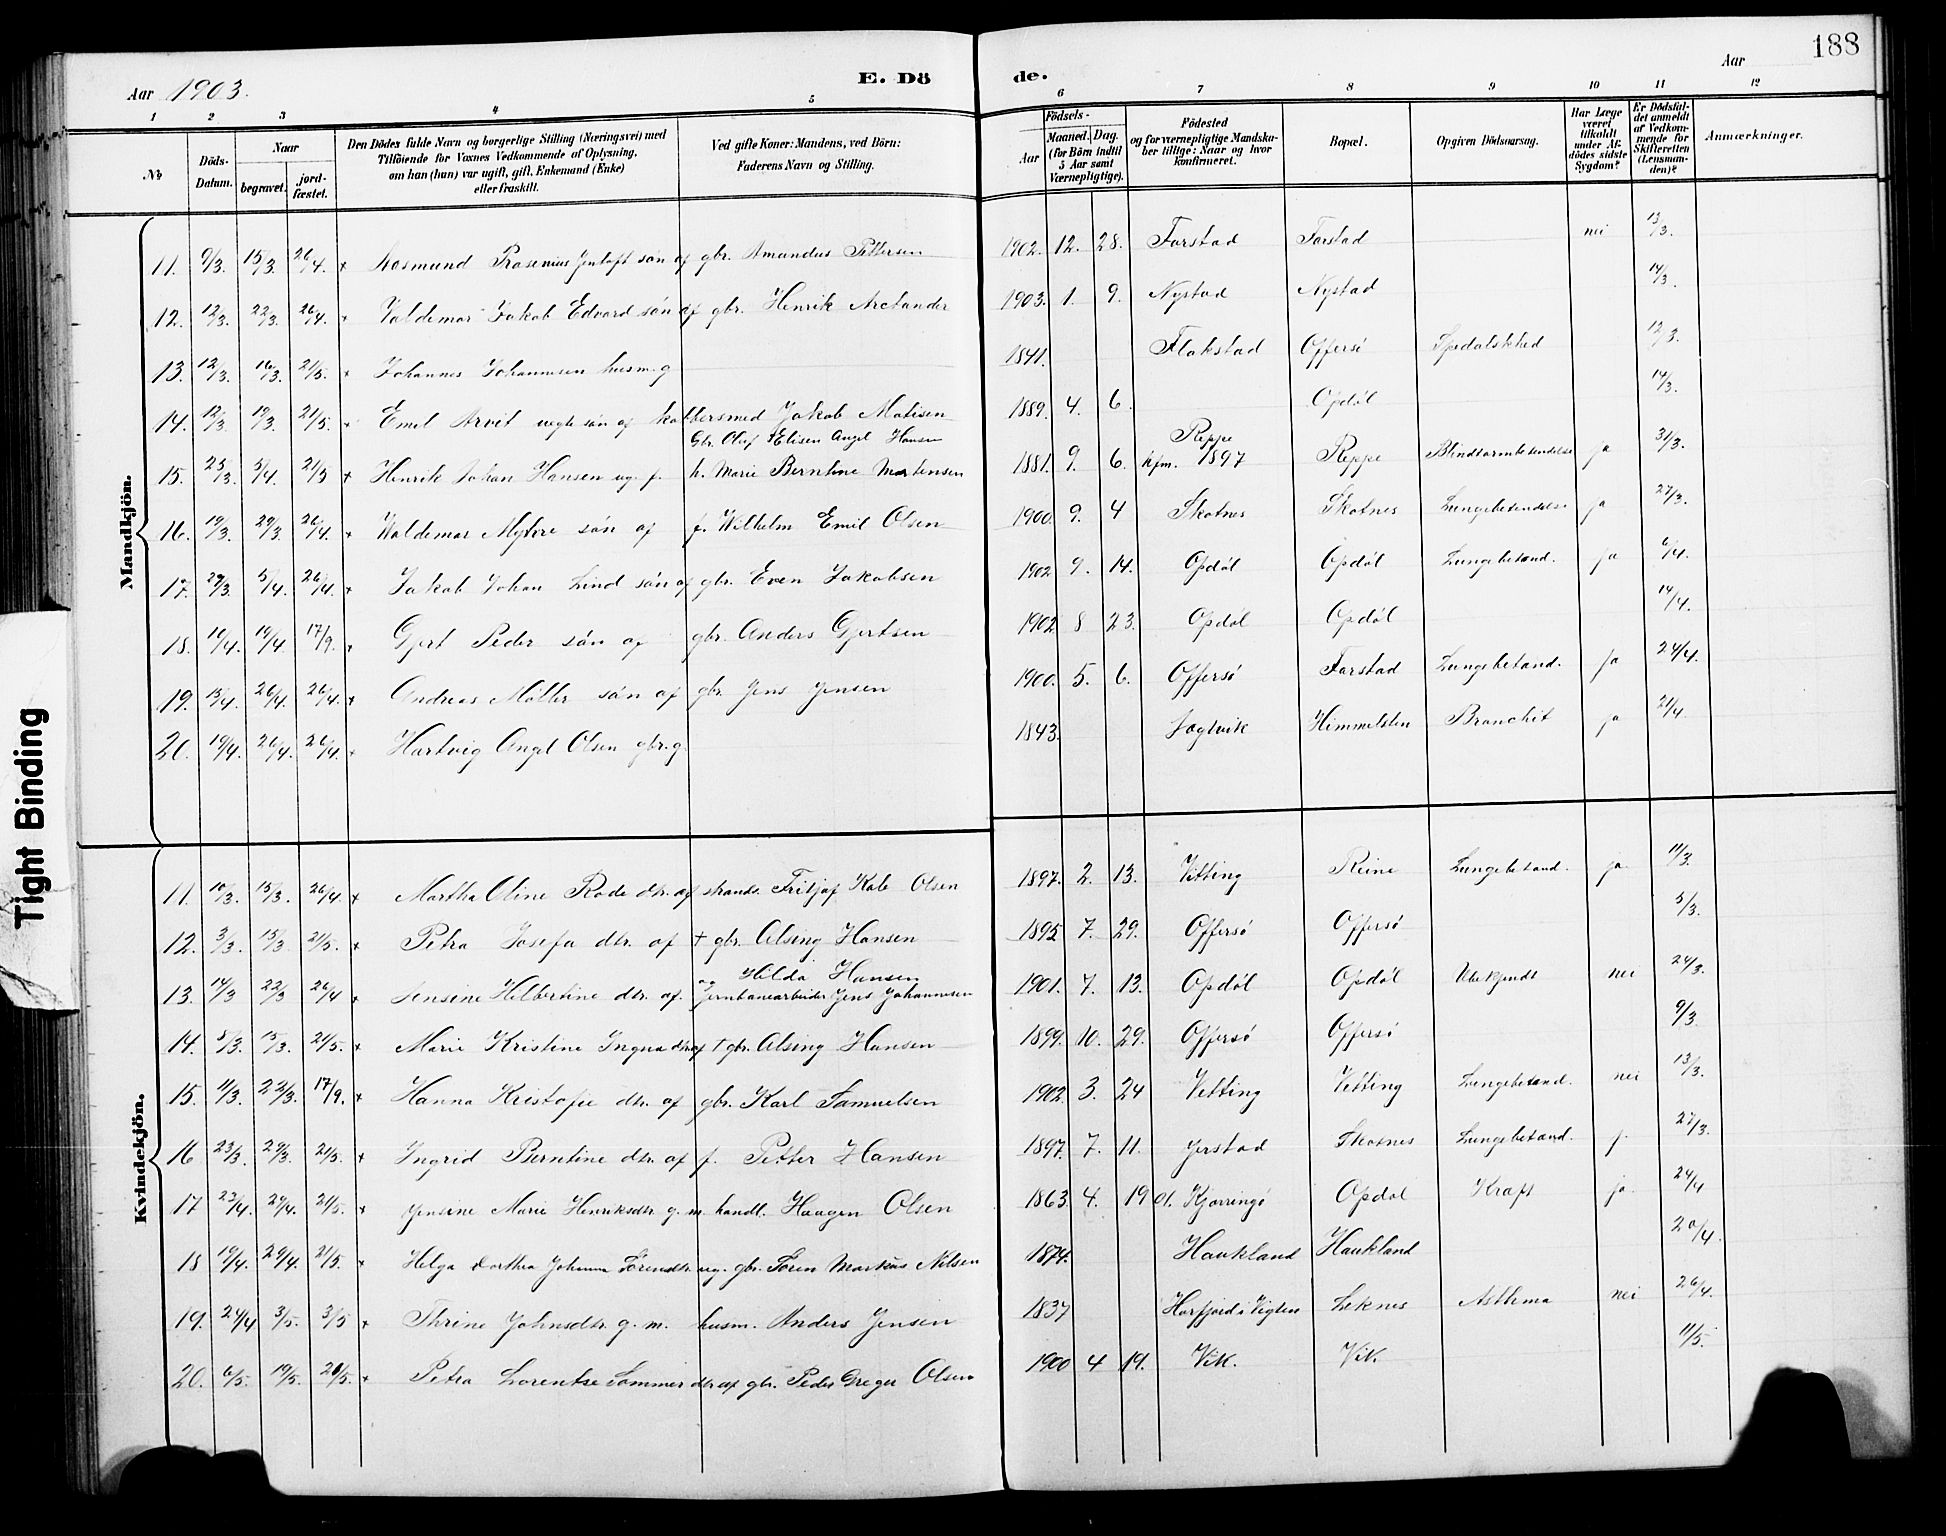 188
Aar 1903.
E. Dö de.
Aar
1 2 3 4 5 6 7 8 9 10 11 12
№ Döds-Datum. Naar begravet. jord-fæstet. Den Dödes fulde Navn og borgerlige Stilling (Næringsvei) med Tilföiende for Voxnes Vedkommende af Oplysning, om han (hun) var ugift, gift, Enkemand (Enke) eller fraskilt. Ved gifte Koner: Mandens, ved Börn: Faderens Navn og Stilling. Födsels- Aar Maaned. Dag. (for Börn indtil 5 Aar samt Værnepligtige). Födested og for værnepligtige Mandskaber tillige: Naar og hvor konfirmeret. Bopæl. Opgiven Dödsaarsag. Har Læge været tilkaldt under Afdödes sidste Sygdom? Er Dödsfaldet anmeldt af Vedkommende for Skifteretten (Lensmanden)? Anmærkninger.
Mandkjön.
11. 9/3. 15/3. 26/4. + Rasmund Rasenius Jentoft sön af gbr. Amandus Pettersen 1902. 12. 28. Farstad Farstad nei 13/3.
12. 12/3. 22/3. 26/4. + Valdemar Jakob Edvard sön af gbr. Henrik Arctander 1903. 1. 9. Nystad Nystad 14/3.
13. 12/3. 16/3. 21/5. + Johannes Johannesen husm. g 1841. Flakstad Offersö Spedalskhed 12/3.
14. 12/3. 19/3. 21/5. + Emil Arvit uegte sön af kobbersmed Jakob Matisen 1889. 4. 6. Opdöl 14/3.
15. 23/3. 5/4. 21/5 + Henrik Johan Hansen ug. f. Gbr. Oluf Elisen Angel Hansen h. Marie Berntine Mortensen 1881. 9. 6. Reppe kfm. 1897 Reppe Blindtarmbetendelse ja 31/3.
16. 19/3. 29/3. 26/4. + Waldemar Myhre sön af f. Wilhelm Emil Olsen 1900. 9. 4 Skotnes Skotnes Lungebetendelse ja 27/3.
17. 29/3. 5/4. 26/4. + Jakob Johan Lind sön af gbr. Even Jakobsen 1902 9. 14. Opdöl Opdöl Lungebetænd. ja 6/4.
18. 10/4. 19/4. 17/9. + Gjert Peder sön af gbr. Anders Gjertsen 1902 8 23. Opdöl Opdöl 14/4.
19. 13/4. 26/4. 26/4. + Andreas Möller sön af gbr. Jens Jensen 1900. 5. 6. Offersö Farstad Lungebetænd. ja 24/4.
20. 19/4. 26/4. 26/4. + Hartvig Angel Olsen gbr. g. 1843. Sogtvik Himmelsten Bronchit ja 21/4.
Kvindekjön.
11. 10/3. 15/3. 26/4. + Martha Oline Rode dtr. af strands. Fritjof Kab Olsen 1897. 2. 13. Vetting Reine Lungebetænd. ja 11/3.
12. 3/3. 15/3 21/5. + Petra Josefa dtr. af + gbr. Alsing Hansen 1895 7. 29. Offersö Offersö 5/3.
13. 14/3 22/3 26/4 + Jensine Helbertine dtr. af. og Hilda Hansen Jernbanearbeider Jens Johannesen 1901. 7. 13. Opdöl Opdöl Ubekjendt nei 24/3.
14. 5/3. 15/3. 21/5. + Marie Kristine Ingna dtr. af + gbr. Alsing Hansen 1899. 10. 29. Offersö Offersö 9/3.
15. 11/3. 22/3. 17/9. + Hanna Kristofie dtr. af gbr. Karl Samuelsen 1902. 3. 24 Vetting Vetting Lungebetænd. nei 13/3.
16 23/3. 29/3. 21/5. + Ingrid Berntine dtr. af f. Petter Hansen 1897. 7. 11. Jerstad Skotnes Lungebetænd. j. 27/3.
17 23/4. 29/4. 21/5. + Jensine Marie Henriksdtr. g. m. handl. Haagen Olsen 1863. 4. 19 Kjærringö Opdöl Kræft ja 24/4
18 19/4. 29/4. 21/5. + Helga Dorthea Johanna Sörensdtr. ug. gbr. Sören Markus Nilsen 1874. Haukland Haukland 20/4.
19. 24/4 3/5. 3/5 + Thrine Johnsdtr. g. m. husm. Anders Jensen 1837 Horfjord i Vegten Leknes Asthma nei 26/4.
20. 6/5. 19/5. 20/5. + Petra Lorentse Sommer dtr. af gbr. Peder Greger Olsen 1900 4 19. Vik. Vik. 11/5.
Tight Binding